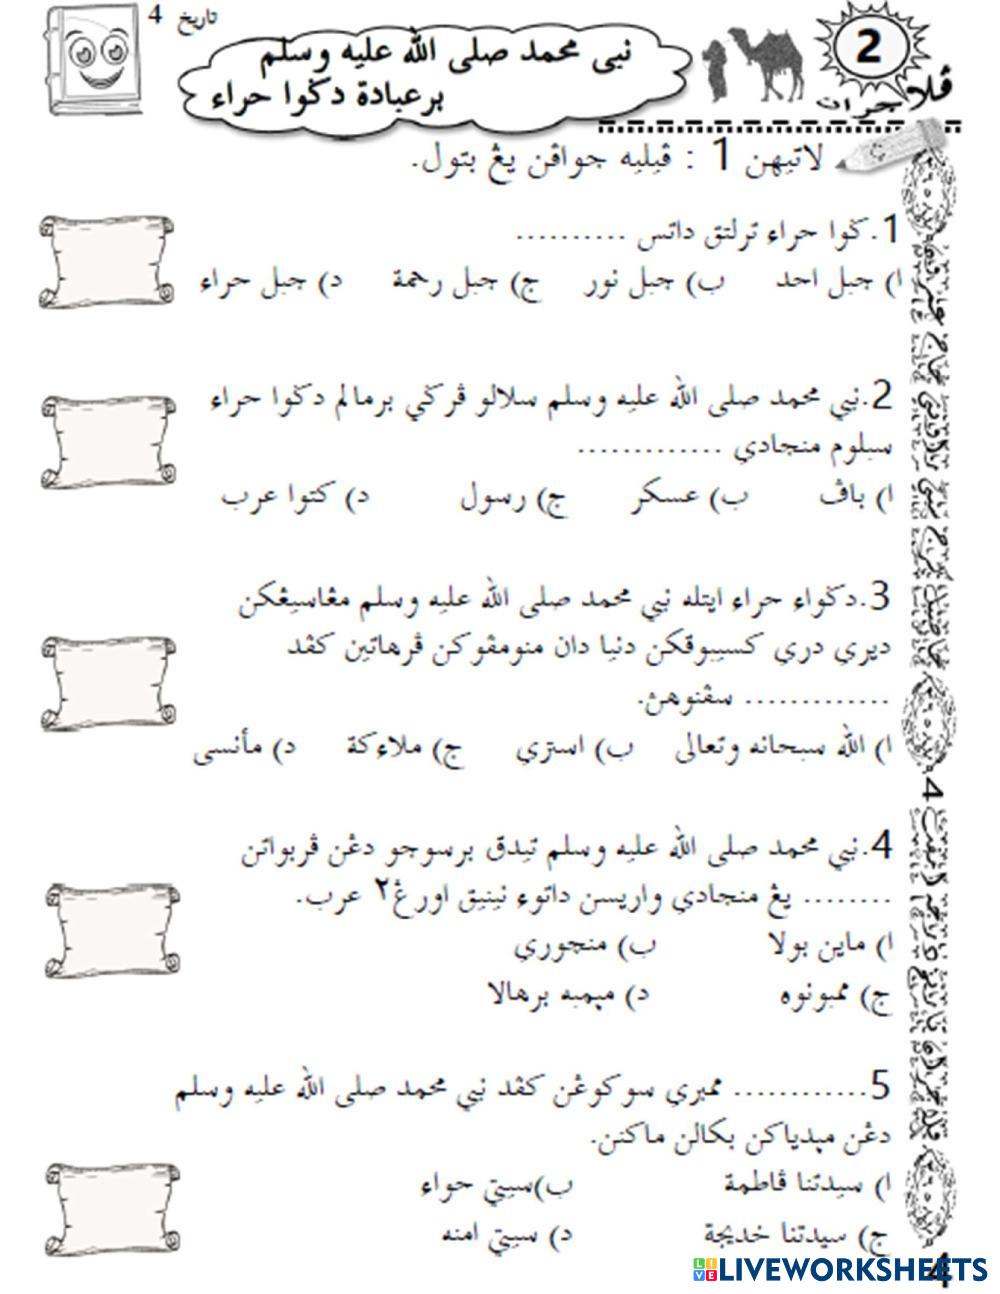 تاريخ 4
2
ڤلاجرن
نبى محمد صلى الله عليه وسلم
برعبادة دݢوا حراء
لاتيهن 1 : ڤيليه جواڤن يڠ بتول.
1.ݢوا حراء ترلتق داتس ..........
ا) جبل احد ب) جبل نور ج) جبل رحمة د) جبل حراء
2.نبي محمد صلى الله عليه وسلم سلالو ڤرݢي برمالم دݢوا حراء
سبلوم منجادي .............
ا) باڤ ب) عسکر ج) رسول د) کتوا عرب
3.دݢواء حراء ايتله نبي محمد صلى الله عليه وسلم مڠاسيڠکن
ديري دري کسيبوقکن دنيا دان منومڤوکن ڤرهاتين کڤد
............. سڤنوهڽ.
ا) الله سبحانه وتعالى ب) استري ج) ملاءکة د) مأنسى
4.نبي محمد صلى الله عليه وسلم تيدق برسوجو دڠن ڤربواتن
........ يڠ منجادي واريسن داتوء نينيق اورڠ٢ عرب.
ا) ماين بولا ب) منچوري
ج) ممبونوه د) مڽمبه برهالا
5............. ممبري سوکوڠن کڤد نبي محمد صلى الله عليه وسلم
دڠن مڽدياکن بکالن ماکنن.
ا) سيدتنا ڤاطمة ب)سيتي حواء
ج) سيدتنا خديجة د) سيتي امنه
4
LIVEWORKSHEETS